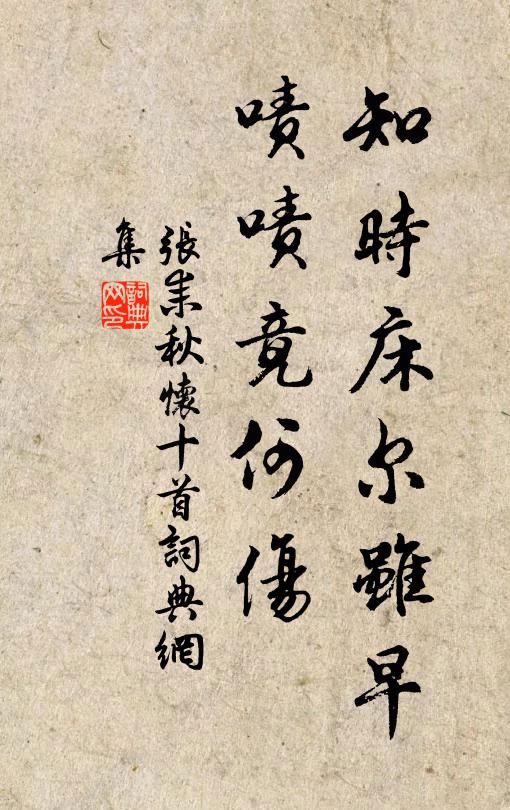 知時床尔雖早
嘖嘖竟何傷
張耒秋懷十首詞典網
集
詞典
网印